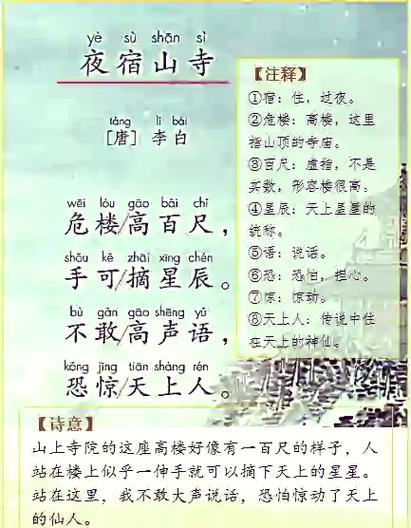 yè sù shān sì
夜宿山寺
táng lǐ bái
［唐］李白
wēi lóu gāo bǎi chǐ
危楼/高百尺，
shǒu kě zhāi xīng chén
手可/摘星辰。
bù gǎn gāo shēng yǔ
不敢/高声语，
kǒng jīng tiān shàng rén
恐惊/天上人。
【注释】
①宿：住，过夜。
②危楼：高楼，这里
指山顶的寺庙。
③百尺：虚指，不是
实数，形容楼很高。
④星辰：天上星星的
统称。
⑤语：说话。
⑥恐：恐怕，担心。
⑦惊：惊动。
⑧天上人：传说中住
在天上的神仙。
【诗意】
山上寺院的这座高楼好像有一百尺的样子，人
站在楼上似乎一伸手就可以摘下天上的星星。
站在这里，我不敢大声说话，恐怕惊动了天上
的仙人。